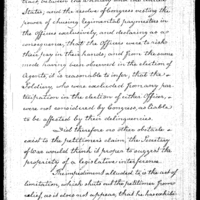 States, and the resolve of Congress vesting the
power of choosing regimental paymasters in
the Officers exclusively, and declaring as a
consequence, that the Officers were to risk
their pay in their hands, and from the same
mode having been observed in the election of
Agents it is reasonable to infer, that the
Soldiery, who were excluded from any par-
ticipation in the election of either Officer,
were not considered by Congress, as liable
to be affected by their delinquencies.
Did therefore no other obstacle
exist to the petitioner's claim, the Secretary
of War would think it proper to suggest the
propriety of a legislative interference.
The impediment alluded to is the act of
limitation, which shuts out the petitioner from
relief, as it does not appear, that he has exhib-